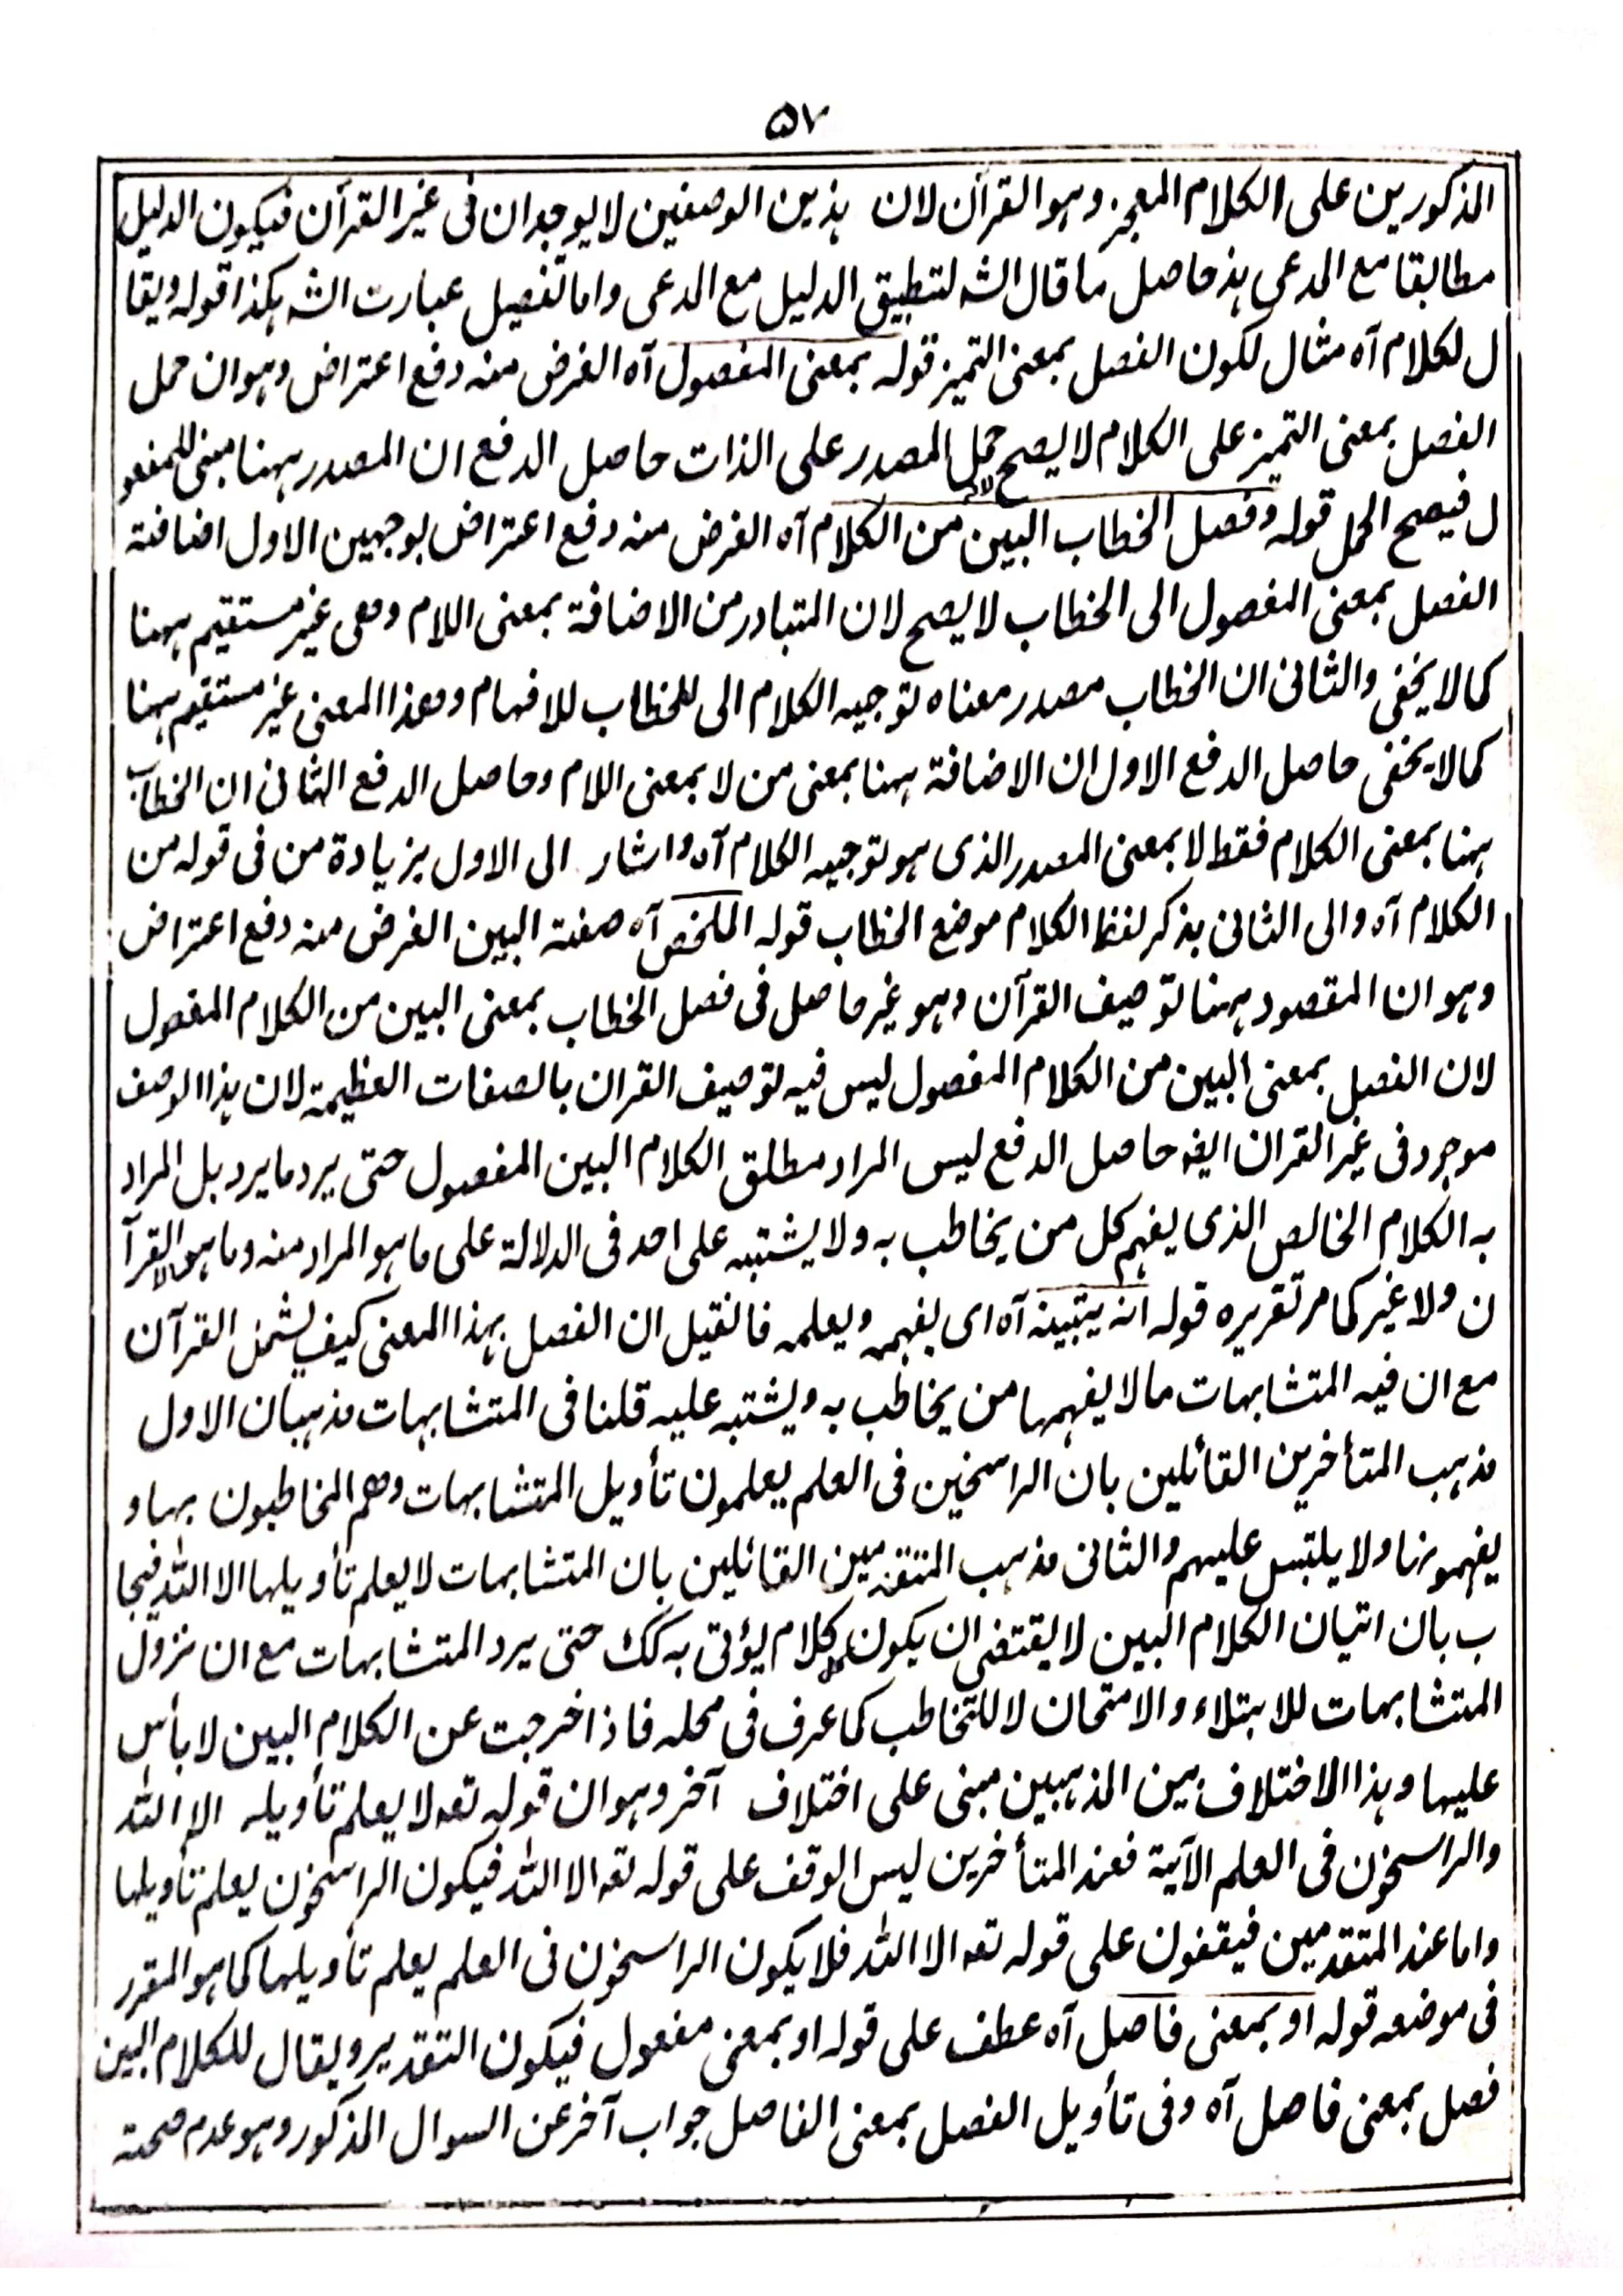 ۵۷
المذکورین علی الکلام المعجز وہو القرآن لان ہذین الوصفین لا یوجدان فی غیر القرآن فیکون الدلیل
مطابقا مع المدعی ہذ حاصل ما قال الشہ لتطبیق الدلیل مع المدعی واما تفصیل عبارت الشہ ہکذا قولہ ویقا
ل لکلام آہ مثال لکون الفصل بمعنی التمیز قولہ بمعنی المفصول آہ الغرض منہ دفع اعتراض وہو ان حمل
الفصل بمعنی التمیز علی الکلام لا یصح حمل المصدر علی الذات حاصل الدفع ان المصدر ہہنا مبنی للمفعو
ل فیصح الحمل قولہ وفصل الخطاب البین من الکلام آہ الغرض منہ دفع اعتراض بوجہین الاول اضافتہ
الفصل بمعنی المفصول الی الخطاب لا یصح لان المتبادر من الاضافة بمعنی اللام وھی غیر مستقیم ہہنا
کما لا یخفی والثانی ان الخطاب مصدر معناہ توجیہ الکلام الی للخطاب للافہام وھذا المعنی غیر مستقیم ہہنا
کما لا یخفی حاصل الدفع الاول ان الاضافة ہہنا بمعنی من لا بمعنی اللام وحاصل الدفع الثانی ان الخطاب
ہہنا بمعنی الکلام فقط لا بمعنی المصدر الذی ہو توجیہ الکلام آہ واشار الی الاول بزیادة من فی قولہ من
الکلام آہ والی الثانی بذکر لفظ الکلام موضع الخطاب قولہ الملخص آہ صفتہ البین الغرض منہ دفع اعتراض
وہو ان المقصود ہہنا توصیف القرآن وہو غیر حاصل فی فصل الخطاب بمعنی البین من الکلام المفصول
لان الفصل بمعنی البین من الکلام المفصول لیس فیہ توصیف القران بالصفات العظیمۃ لان ہذا الوصف
موجود فی غیر القران ایضہ حاصل الدفع لیس المراد مطلق الکلام البین المفصول حتی یرد ما یرد بل المراد
بہ الکلام الخالص الذی یفہم کل من یخاطب بہ ولا یشتبہ علی احد فی الدلالة علی ما ہو المراد منہ وما ہو الا القرآ
ن ولا غیر کما مر تقریرہ قولہ انہ یتبینہ آہ ای یفہمہ ویعلمہ فالقیل ان الفصل بہذا المعنی کیف یشمل القرآن
مع ان فیہ المتشابہات ما لا یفہمہا من یخاطب بہ ویشتبہ علیہ قلنا فی المتشابہات مذہبان الاول
مذہب المتأخرین القائلین بان الراسخین فی العلم یعلمون تأویل المتشابہات وھم المخاطبون بہا و
یفہمونہا ولا یلتبس علیہم والثانی مذہب المتقدمین القائلین بان المتشابہات لا یعلم تأویلہا الا اللہ فیجا
ب بان اتیان الکلام البین لا یقتضی ان یکون کل کلام یؤتی بہ کک حتی یرد المتشابہات مع ان نزول
المتشابہات للابتلاء والامتحان لا للتخاطب کما عرف فی محلہ فاذا خرجت عن الکلام البین لا بأس
علیہا وہذا الاختلاف بین المذہبین مبنی علی اختلاف آخر وہو ان قولہ تعہ لا یعلم تأویلہ الا اللہ
والراسخون فی العلم الآیة فعند المتأخرین لیس الوقف علی قولہ تعہ الا اللہ فیکون الراسخون یعلم تأویلہا
واما عند المتقدمین فیقفون علی قولہ تعہ الا اللہ فلا یکون الراسخون فی العلم یعلم تأویلہا کما ہو المقرر
فی موضعہ قولہ او بمعنی فاصل آہ عطف علی قولہ او بمعنی مفعول فیکون التقدیر ویقال للکلام البین
فصل بمعنی فاصل آہ وفی تأویل الفصل بمعنی الفاصل جواب آخر عن السوال المذکور وہو عدم صحتہ